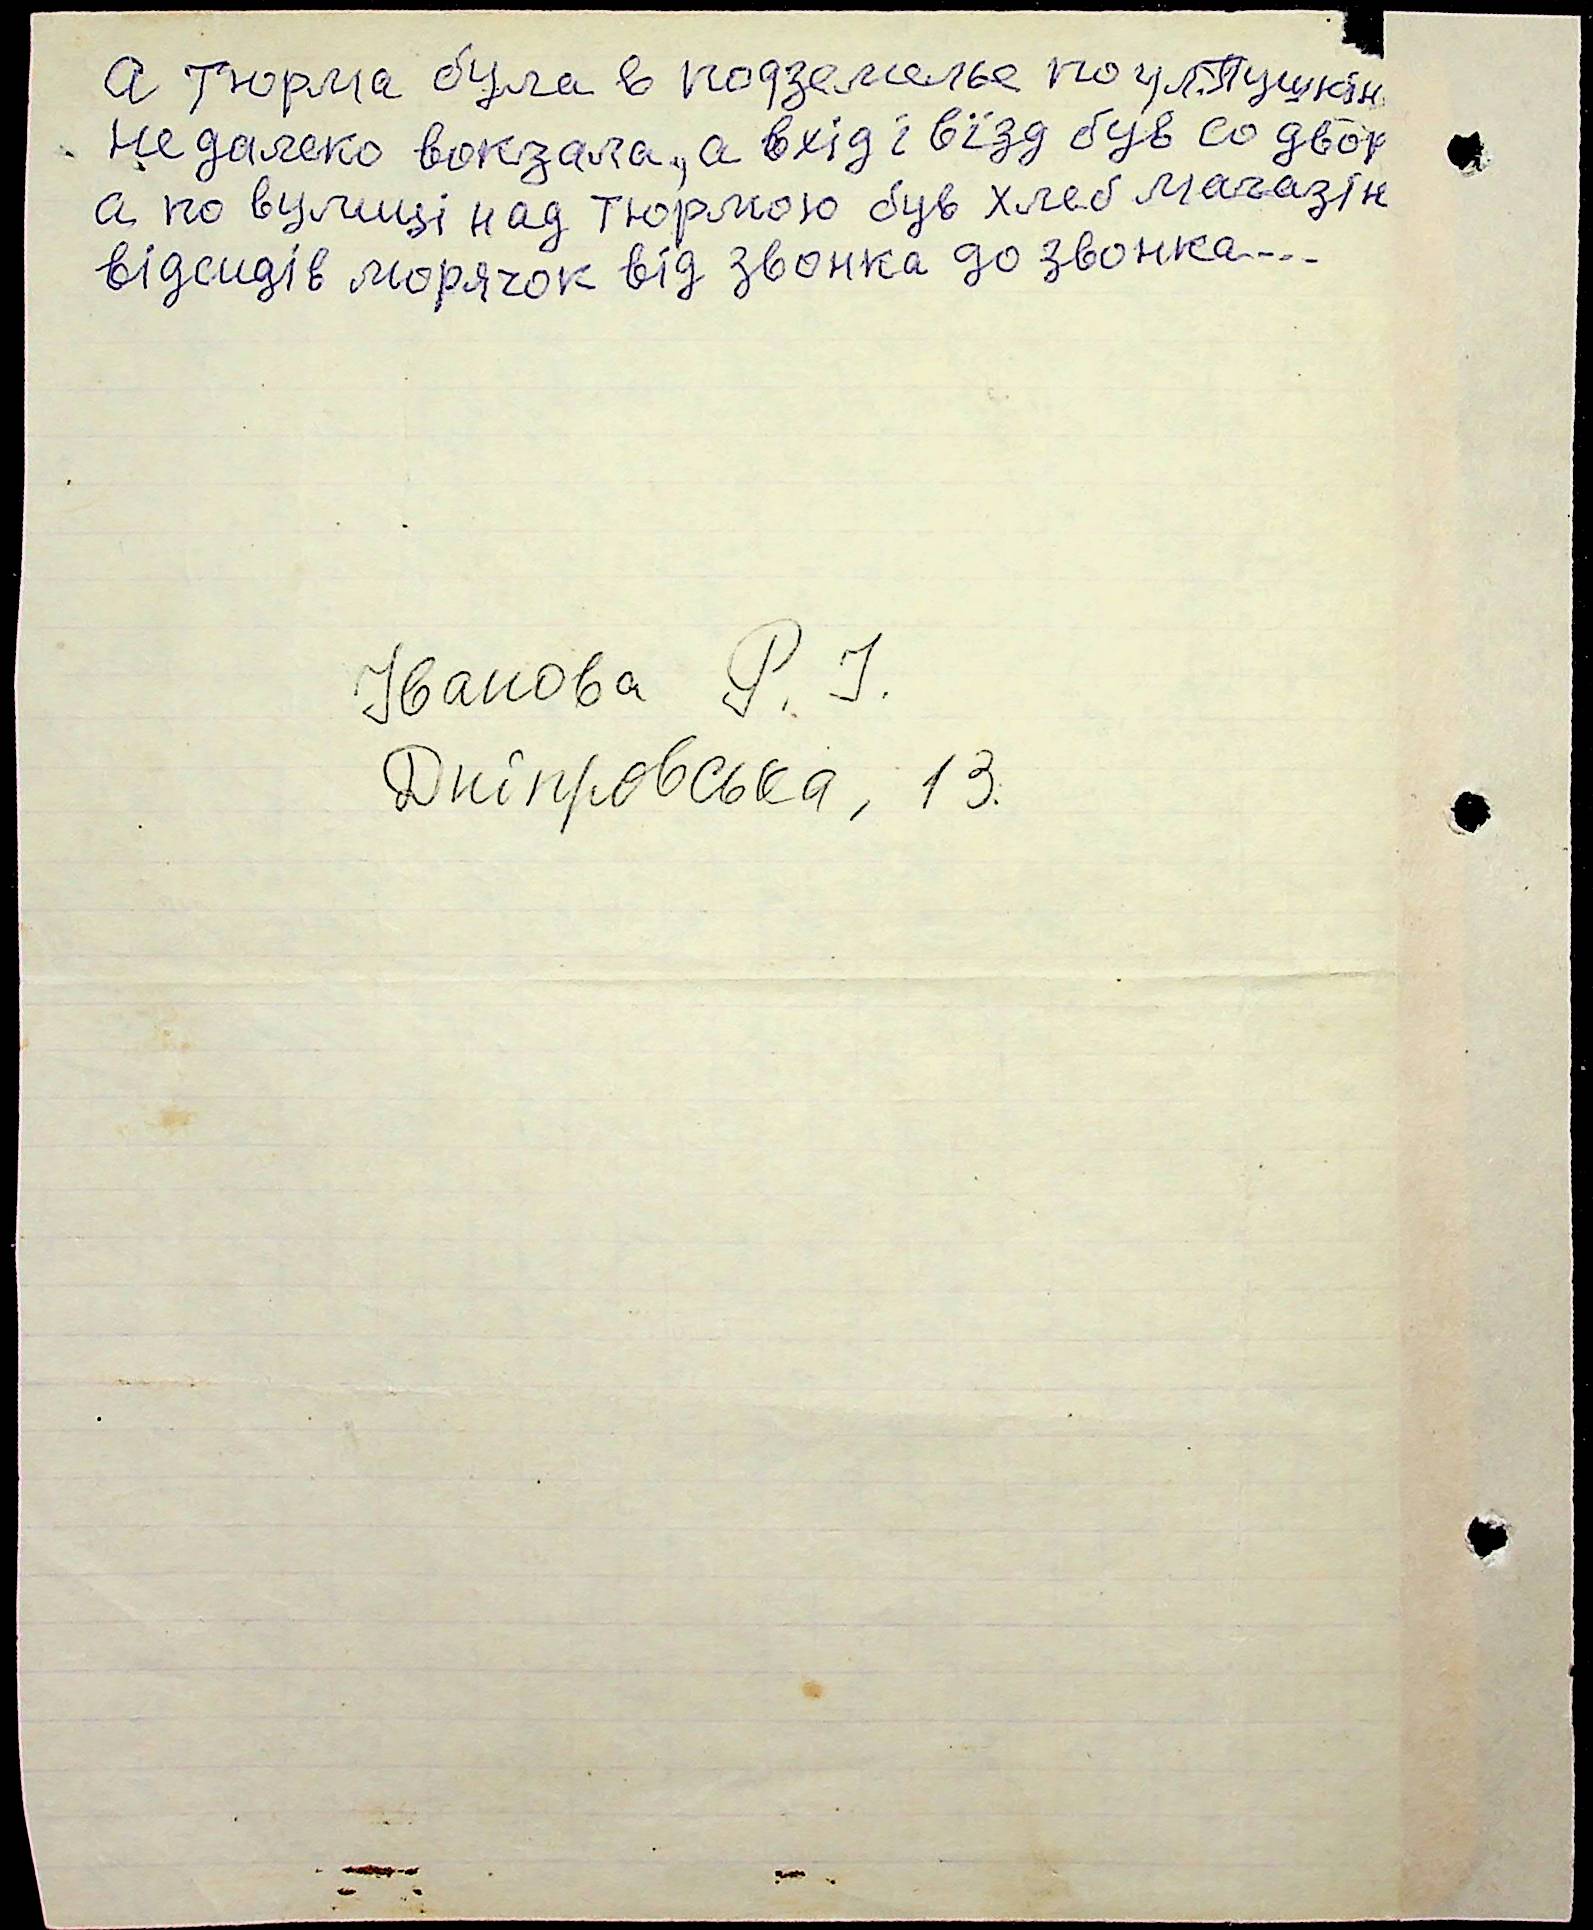 а тюрма була в подземелье по ул. Пушкін
не далеко вокзала, а вхід і вїзд був со двор
а по вулиці над тюрмою був хлеб магазін
відсидів морячок від звонка до звонка....
Іванова Р. І.
Дніпровська, 13.